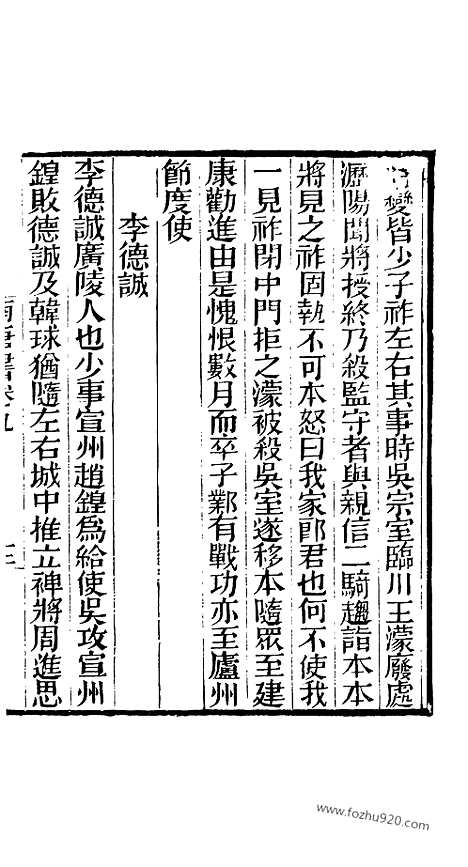 變皆少子祚左右其事時吳宗室臨川王濛廢處
瀝陽聞將授終乃殺監守者與親信二騎趨詣本本
將見之祚固執不可本怒曰我家郎君也何不使我
一見祚閉中門拒之濛被殺吳室遂移本隨眾至建
康勸進由是愧恨數月而卒子鄴有戰功亦至廬州
節度使
李德誠
李德誠廣陵人也少事宣州趙鍠為給使吳攻宣州
鍠敗德誠及韓球猶隨左右城中推立裨將周進思
南唐書卷九
三
www.fozhu920.com